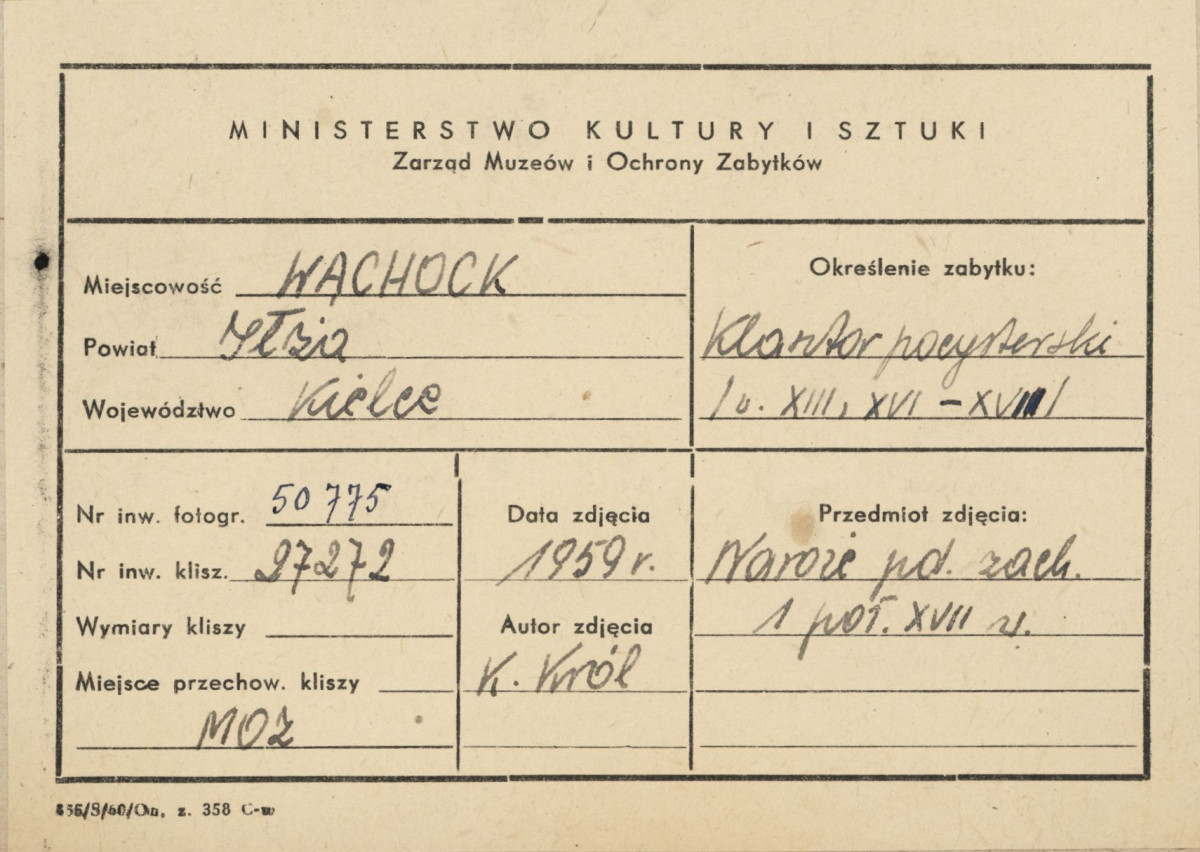 MINISTERSTWO KULTURY I SZTUKI
Zarząd Muzeów i Ochrony Zabytków
Miejscowość WĄCHOCK
Powiat Iłża
Województwo Kielce
Określenie zabytku:
Klasztor pocysterski
/w. XIII, XVI – XVIII/
Nr inw. fotogr. 50775
Nr inw. klisz. 27272
Wymiary kliszy
Miejsce przechow. kliszy
MOZ
Data zdjęcia
1959 r.
Autor zdjęcia
K. Król
Przedmiot zdjęcia:
Naroże pd. zach.
1 poł. XVII w.
z. 358 C-w